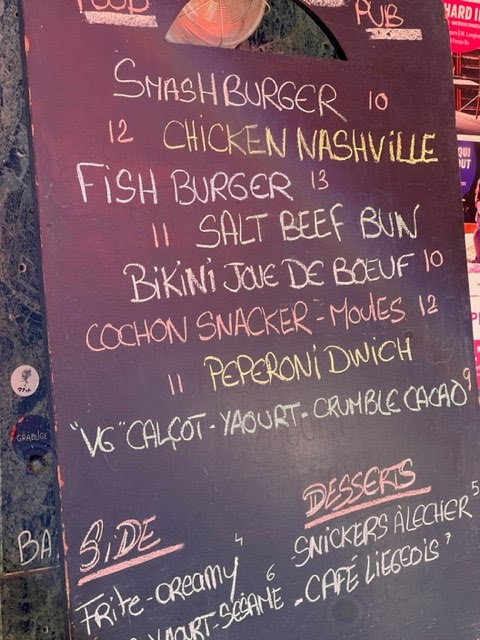 FOOD PUB
SMASHBURGER 10
12 CHICKEN NASHVILLE
FISH BURGER 13
11 SALT BEEF BUN
BIKINI JOUE DE BŒUF 10
COCHON SNACKER - MOULES 12
11 PEPERONI DWICH
"VG" CALÇOT - YAOURT - CRUMBLE CACAO 9
SIDE
Frite - creamy 4
YAOURT - SÉSAME 6
DESSERTS
SNICKERS À LECHER 5
- CAFÉ LIEGEOIS 7
GRABUGE
BA
HARD
QUI
OUT